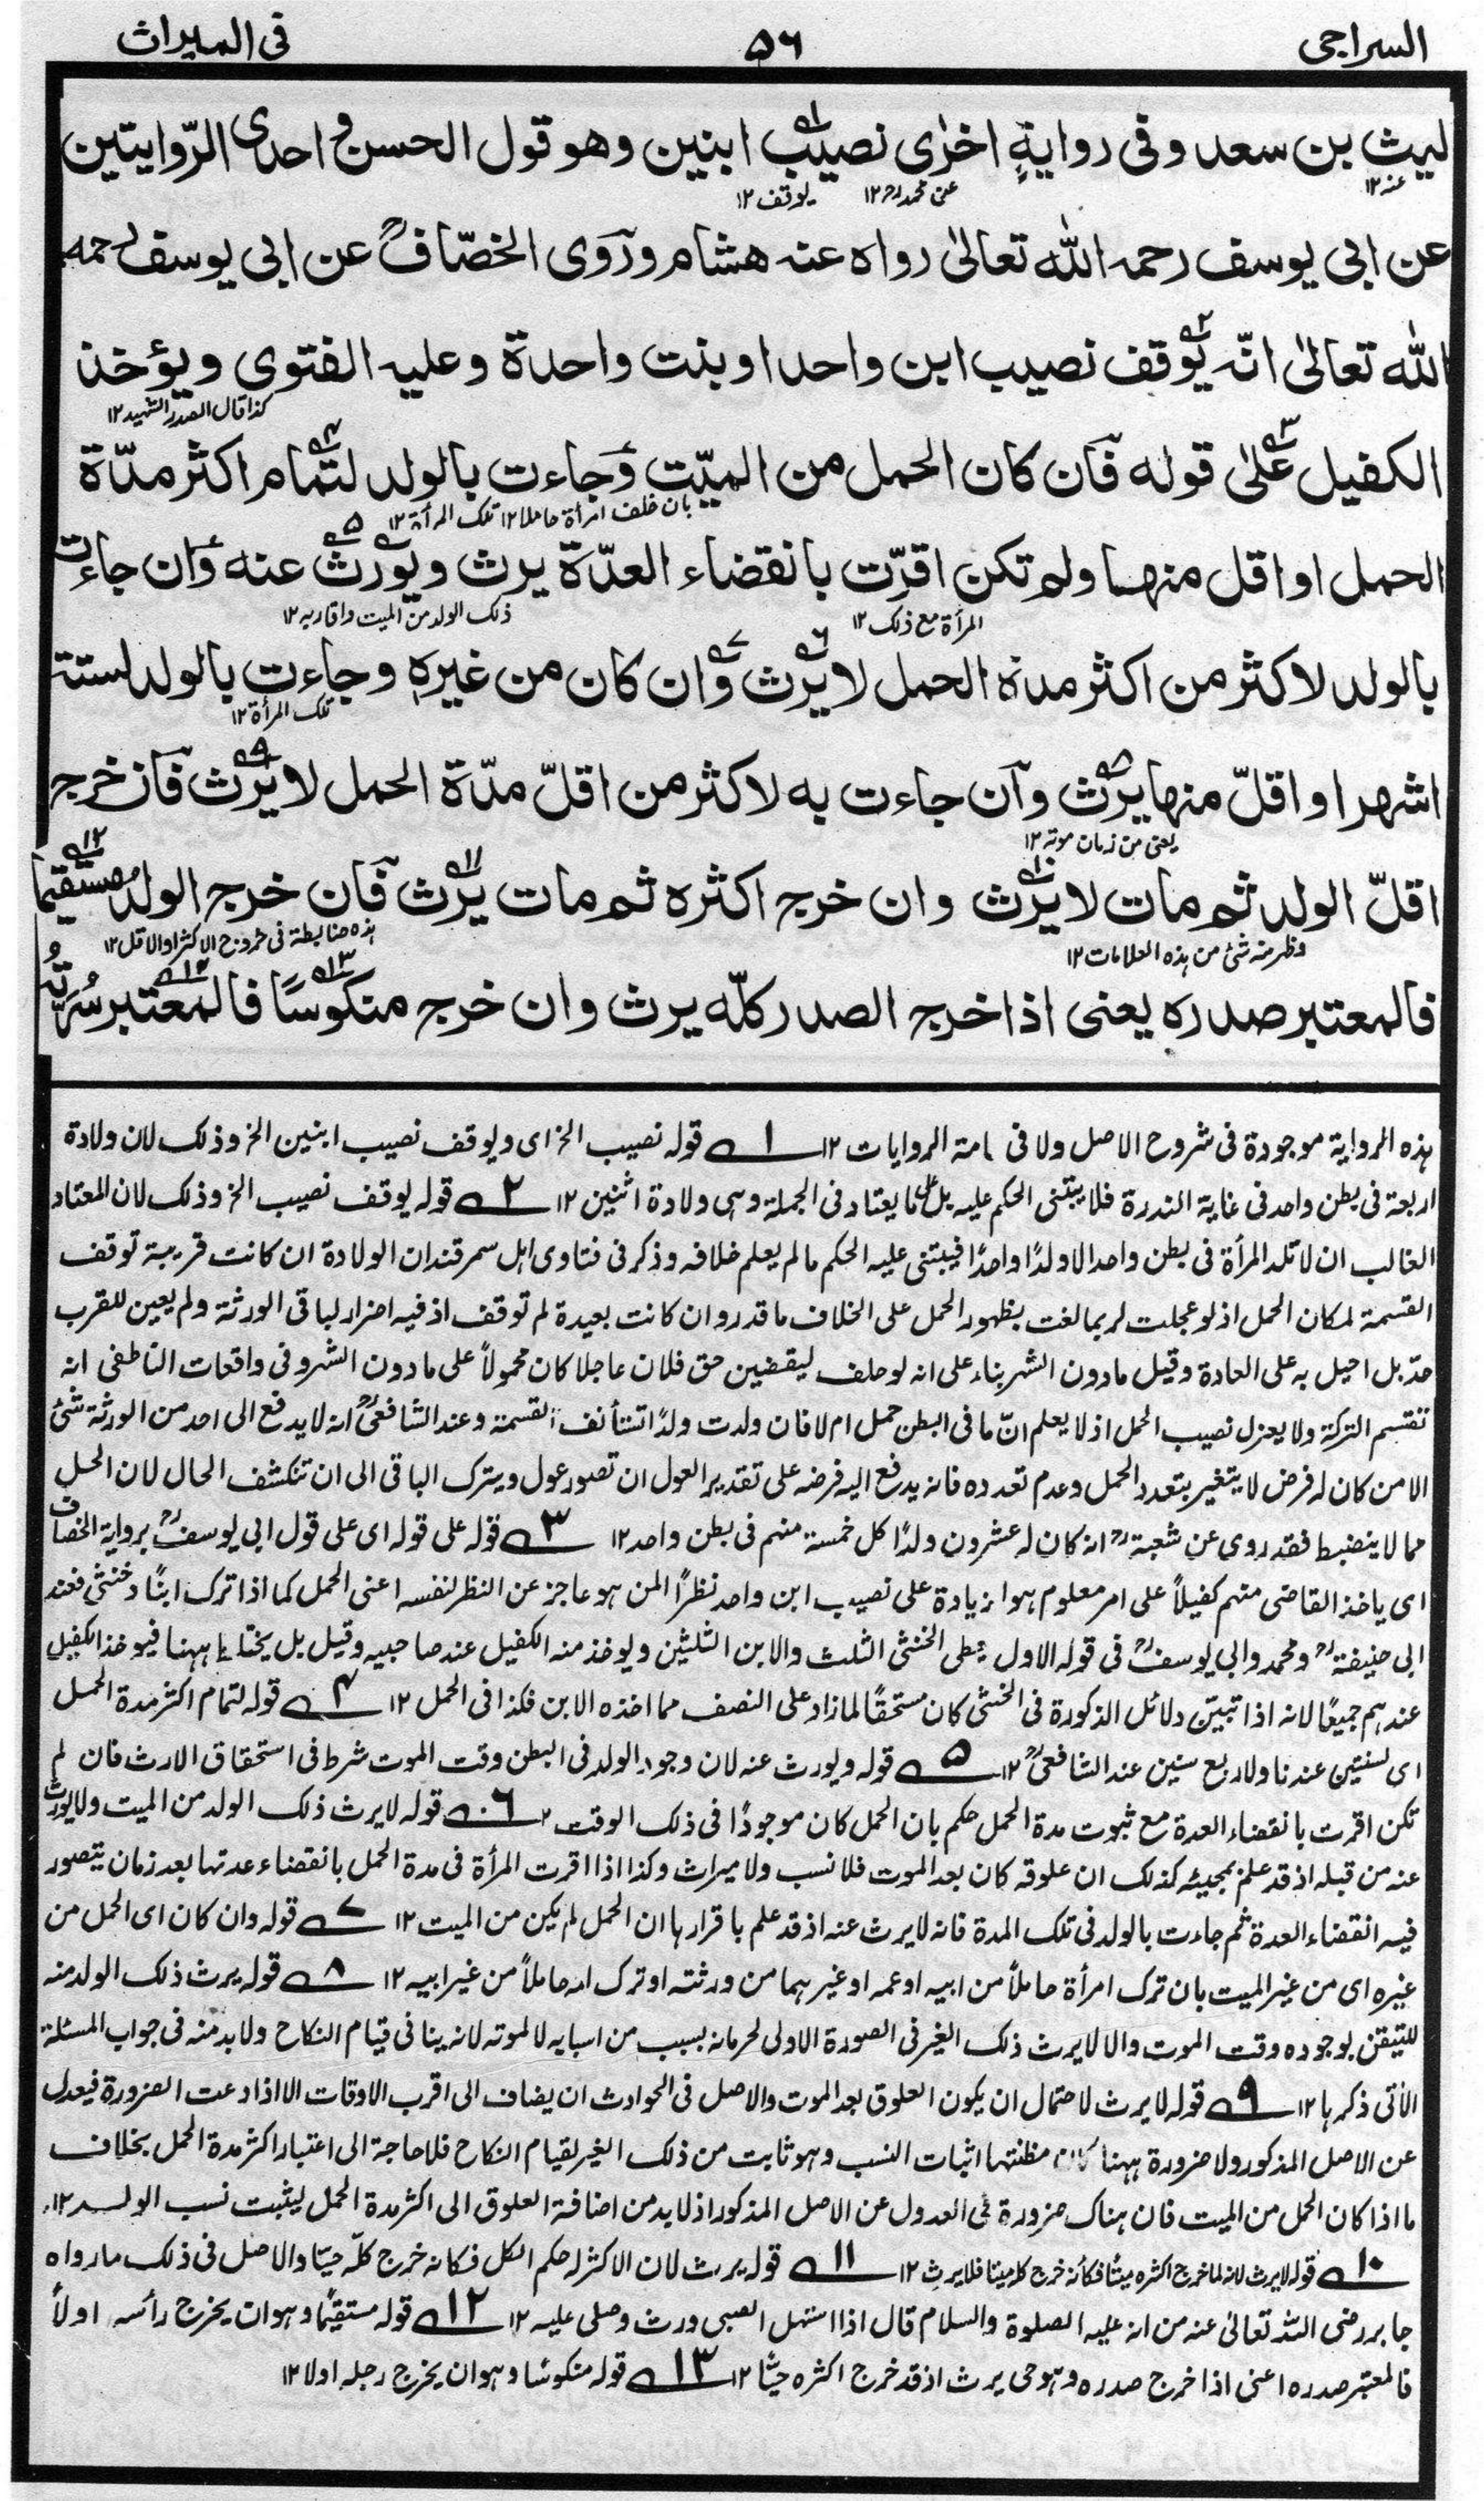 السراجی ۵۶ فی المیراث
لیث بن سعد و فی روایةٍ اخرٰی نصیب ابنین وهو قول الحسن و احدی الرّوایتین
عنه۱۲ عن محمد رح۱۲ یوقف۱۲
عن ابی یوسف رحمه الله تعالیٰ رواه عنه هشام و رَوَی الخصّافؒ عن ابی یوسف رحمه
الله تعالیٰ انّه یُوقف نصیب ابن واحد او بنت واحدة وعلیه الفتوی و یؤخذ
کذا قال الصدر الشهید۱۲
الکفیل علیٰ قوله فَان کان الحمل من المیّت وَجاءت بالولد لتمام اکثر مدّة
بان خلف امرأة حاملا۱۲ تلک المرأة۱۲
الحمل او اقل منها ولم تکن اقرّت بانقضاء العدّة یرث ویُورث عنه وَان جاءت
المرأة مع ذلک۱۲ ذلک الولد من المیت واقاربه۱۲
بالولد لاکثر من اکثر مدة الحمل لا یرث وَان کان من غیره وجاءت بالولد لستة
تلک المرأة۱۲
اشهر او اقلّ منها یرث وَان جاءت به لاکثر من اقلّ مدّة الحمل لا یرث فَان خرج
یعنی من زمان موته۱۲
اقلّ الولد ثم مات لا یرث وان خرج اکثره ثم مات یرث فَان خرج الولد مستقیما
وظهر منه شئ من هذه العلامات۱۲ هذه ضابطة فی خروج الاکثر او الاقل۱۲
فالمعتبر صدره یعنی اذا خرج الصدر کلّه یرث وان خرج منکوسًا فالمعتبر سُرّتُهُ
هذه الروایة موجودة فی شروح الاصل ولا فی عامة الروایات ۱۲ ۱ قوله نصیب الخ ای ویوقف نصیب ابنین الخ وذلک لان ولادة
اربعة فی بطن واحد فی غایة الندرة فلا یبتنی الحکم علیه بل علی ما یعتاد فی الجملة وهی ولادة اثنین ۱۲ ۲ قوله یوقف نصیب الخ وذلک لان المعتاد
الغالب ان لا تلد المرأة فی بطن واحد الا ولدًا واحدًا فیبتنی علیه الحکم ما لم یعلم خلافه وذکر فی فتاوی اهل سمرقند ان الولادة ان کانت قریبة توقف
القسمة لمکان الحمل اذ لو عجلت لربما لغت بظهور الحمل علی الخلاف ما قدر وان کانت بعیدة لم توقف اذ فیه اضرار لباقی الورثة ولم یعین للقرب
حدّ بل احیل به علی العادة وقیل ما دون الشهر بناء علی انه لو حلف لیقضین حق فلان عاجلا کان محمولاً علی ما دون الشهر وفی واقعات الناطفی انه
تقتسم الترکة ولا یعزل نصیب الحمل اذ لا یعلم انّ ما فی البطن حمل ام لا فان ولدت ولدًا تستأنف القسمة وعند الشافعیؒ انه لا یدفع الی احد من الورثة شئ
الا من کان له فرض لا یتغیر بتعدد الحمل وعدم تعدده فانه یدفع الیه فرضه علی تقدیر العول ان تصور عول ویترک الباقی الی ان تنکشف الحال لان الحمل
مما لا ینضبط فقد روی عن شعبةؒ انه کان له عشرون ولدًا کل خمسة منهم فی بطن واحد ۱۲ ۳ قوله علی قوله ای علی قول ابی یوسفؒ بروایة الخصاف
ای یاخذ القاضی منهم کفیلاً علی امر معلوم هو الزیادة علی نصیب ابن واحد نظرًا لمن هو عاجز عن النظر لنفسه اعنی الحمل کما اذا ترک ابنًا وخنثی فعند
ابی حنیفةؒ ومحمد وابی یوسفؒ فی قوله الاول یعطی الخنثی الثلث والابن الثلثین ویوخذ منه الکفیل عند صاحبیه وقیل بل یحتاط ههنا فیوخذ الکفیل
عندهم جمیعًا لانه اذا تبیّن دلائل الذکورة فی الخنثی کان مستحقًا لما زاد علی النصف مما اخذه الابن فکذا فی الحمل ۱۲ ۴ قوله لتمام اکثر مدة الحمل
ای لسنتین عندنا ولاربع سنین عند الشافعیؒ ۱۲ ۵ قوله ویورث عنه لان وجود الولد فی البطن وقت الموت شرط فی استحقاق الارث فان لم
تکن اقرت بانقضاء العدة مع ثبوت مدة الحمل حکم بان الحمل کان موجودًا فی ذلک الوقت ۱۲ ۶ قوله لا یرث ذلک الولد من المیت ولا یورث
عنه من قبله اذ قد علم بمجیئه کذلک ان علوقه کان بعد الموت فلا نسب ولا میراث وکذا اذا اقرت المرأة فی مدة الحمل بانقضاء عدتها بعد زمان یتصور
فیه انقضاء العدة ثم جاءت بالولد فی تلک المدة فانه لا یرث عنه اذ قد علم باقرارها ان الحمل لم یکن من المیت ۱۲ ۷ قوله وان کان ای الحمل من
غیره ای من غیر المیت بان ترک امرأة حاملاً من ابیه او عمه او غیرهما من ورثته او ترک امه حاملاً من غیر ابیه ۱۲ ۸ قوله یرث ذلک الولد منه
للتیقن بوجوده وقت الموت والا لا یرث ذلک الغیر فی الصورة الاولی لحرمانه بسبب من اسبابه لا لموته لانه ینافی قیام النکاح ولا بد منه فی جواب المسئلة
الآتی ذکرها ۱۲ ۹ قوله لا یرث لاحتمال ان یکون العلوق بعد الموت والاصل فی الحوادث ان یضاف الی اقرب الاوقات الا اذا دعت الضرورة فیعدل
عن الاصل المذکور ولا ضرورة ههنا کان مظنتها اثبات النسب وهو ثابت من ذلک الغیر لقیام النکاح فلا حاجة الی اعتبار اکثر مدة الحمل بخلاف
ما اذا کان الحمل من المیت فان هناک ضرورة فی العدول عن الاصل المذکور اذ لا بد من اضافة العلوق الی اکثر مدة الحمل لیثبت نسب الولد ۱۲
۱۰ قوله لا یرث لانه لما خرج اکثره میتًا فکأنه خرج کله میتا فلا یرث ۱۲ ۱۱ قوله یرث لان الاکثر له حکم الکل فکانه خرج کلّه حیّا والاصل فی ذلک ما رواه
جابر رضی الله تعالیٰ عنه من انه علیه الصلوة والسلام قال اذا استهل الصبی ورث وصلی علیه ۱۲ ۱۲ قوله مستقیمًا وهو ان یخرج رأسه اولاً
فالمعتبر صدره اعنی اذا خرج صدره وهو حی یرث اذ قد خرج اکثره حیًّا ۱۲ ۱۳ قوله منکوسًا وهو ان یخرج رجله اولا ۱۲